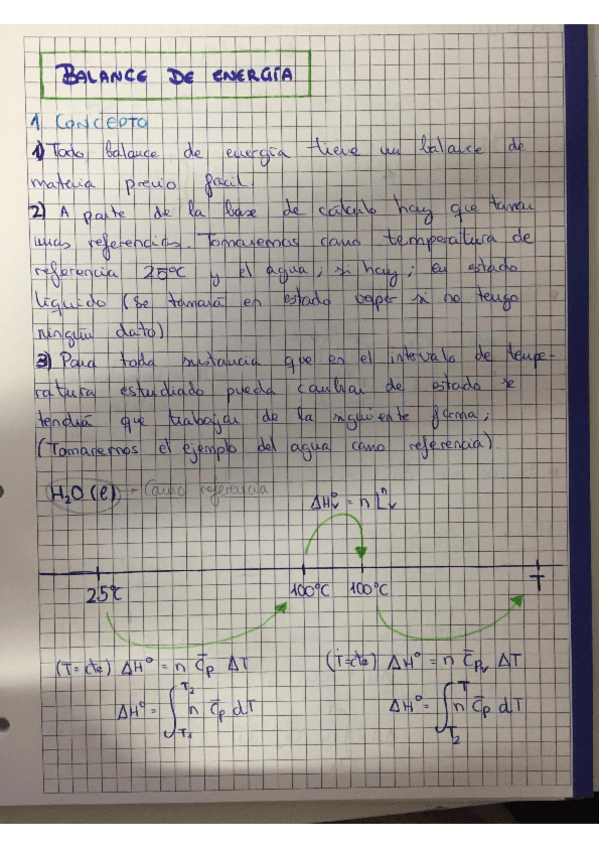 BALANCE DE ENERGÍA
1 CONCEPTO
1) Todo balance de energía tiene un balance de
materia previo fácil.
2) A parte de la base de cálculo hay que tomar
unas referencias. Tomaremos como temperatura de
referencia 25ºC y el agua, si hay, en estado
líquido (Se tomará en estado vapor si no tengo
ningún dato)
3) Para toda sustancia que en el intervalo de tempe-
ratura estudiado pueda cambiar de estado se
tendrá que trabajar de la siguiente forma;
(Tomaremos el ejemplo del agua como referencia).
H₂O (l) - Como referencia
ΔHºv = n Lⁿv
25ºC 100ºC 100ºC T
(T=cte) ΔHº = n C̄p ΔT (T=cte) ΔHº = n C̄pv ΔT
ΔHº = ∫T₁T₂ n C̄p dT ΔHº = ∫T₂T n C̄p dT